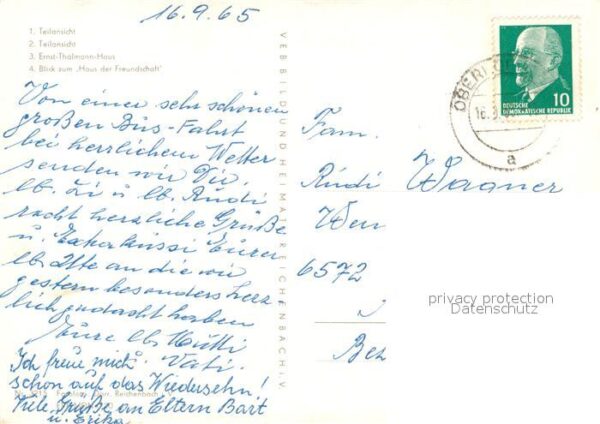 16.9.65
1. Teilansicht
2. Teilansicht
3. Ernst-Thälmann-Haus
4. Blick zum „Haus der Freundschaft"
Von einer sehr schönen
großen Bus-Fahrt
bei herrlichem Wetter
senden wir Dir,
lb. Li u lb. Rudi
recht herzliche Grüße
u. Eurer
lb. an die wir
gestern besonders herz
lich gedacht haben
Eure lb. Mutti
Vati.
Ich freue mich
schon auf das Wiedersehn!
Viele Grüße an Eltern Bart
u. Erika
Reichenbach
VEB BILD UND HEIMAT REICHENBACH i. V
DEUTSCHE
DEMOKRATISCHE REPUBLIK 10
16.
a
Fam.
Rudi Wagner
6572
Bez
privacy protection
Datenschutz